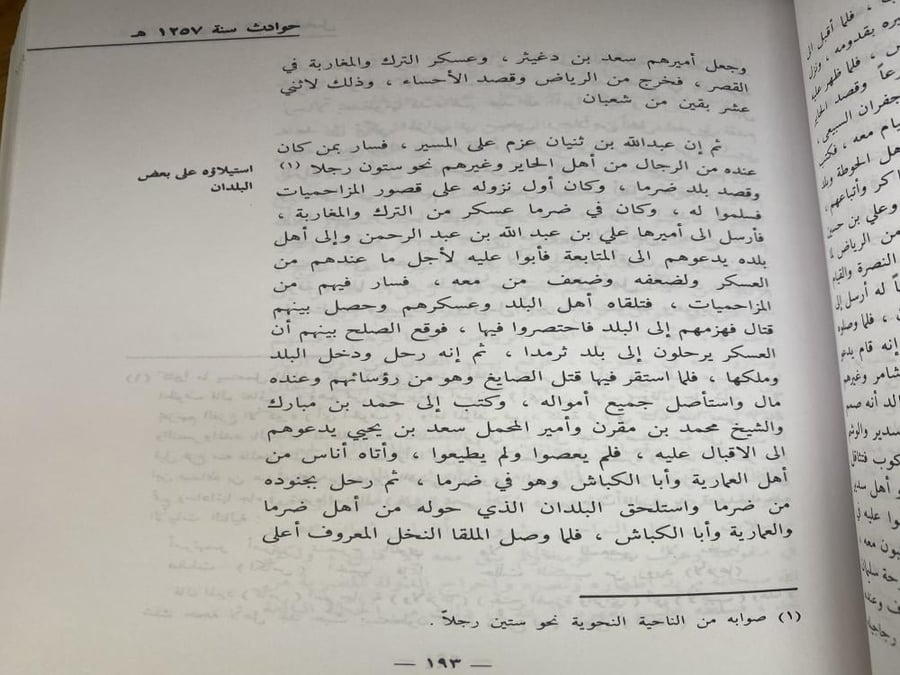 حوادث سنة ١٢٥٧ هـ
وجعل أميرهم سعد بن دغيثر ، وعسكر الترك والمغاربة في
القصر ، فخرج من الرياض وقصد الأحساء ، وذلك لاثني
عشر بقين من شعبان
ثم إن عبدالله بن ثنيان عزم على المسير ، فسار بمن كان
عنده من الرجال من أهل الحاير وغيرهم نحو ستون رجلا (١)
وقصد بلد ضرما ، وكان أول نزوله على قصور المزاحميات
فسلموا له ، وكان في ضرما عسكر من الترك والمغاربة ،
فأرسل الى أميرها علي بن عبد الله بن عبد الرحمن وإلى أهل
بلده يدعوهم الى المتابعة فأبوا عليه لأجل ما عندهم من
العسكر ولضعفه وضعف من معه ، فسار فيهم من
المزاحميات ، فتلقاه أهل البلد وعسكرهم وحصل بينهم
قتال فهزمهم إلى البلد فاحتصروا فيها ، فوقع الصلح بينهم أن
العسكر يرحلون إلى بلد ثرمدا ، ثم إنه رحل ودخل البلد
وملكها ، فلما استقر فيها قتل الصايغ وهو من رؤسائهم وعنده
مال واستأصل جميع أمواله ، وكتب إلى حمد بن مبارك
والشيخ محمد بن مقرن وأمير المحمل سعد بن يحيي يدعوهم
الى الاقبال عليه ، فلم يعصوا ولم يطيعوا ، وأتاه أناس من
أهل العمارية وأبا الكباش وهو في ضرما ، ثم رحل بجنوده
من ضرما واستلحق البلدان الذي حوله من أهل ضرما
والعمارية وأبا الكباش ، فلما وصل الملقا النخل المعروف أعلى
استيلاؤه على بعض
البلدان
(١) صوابه من الناحية النحوية نحو ستين رجلاً .
— ١٩٣ —